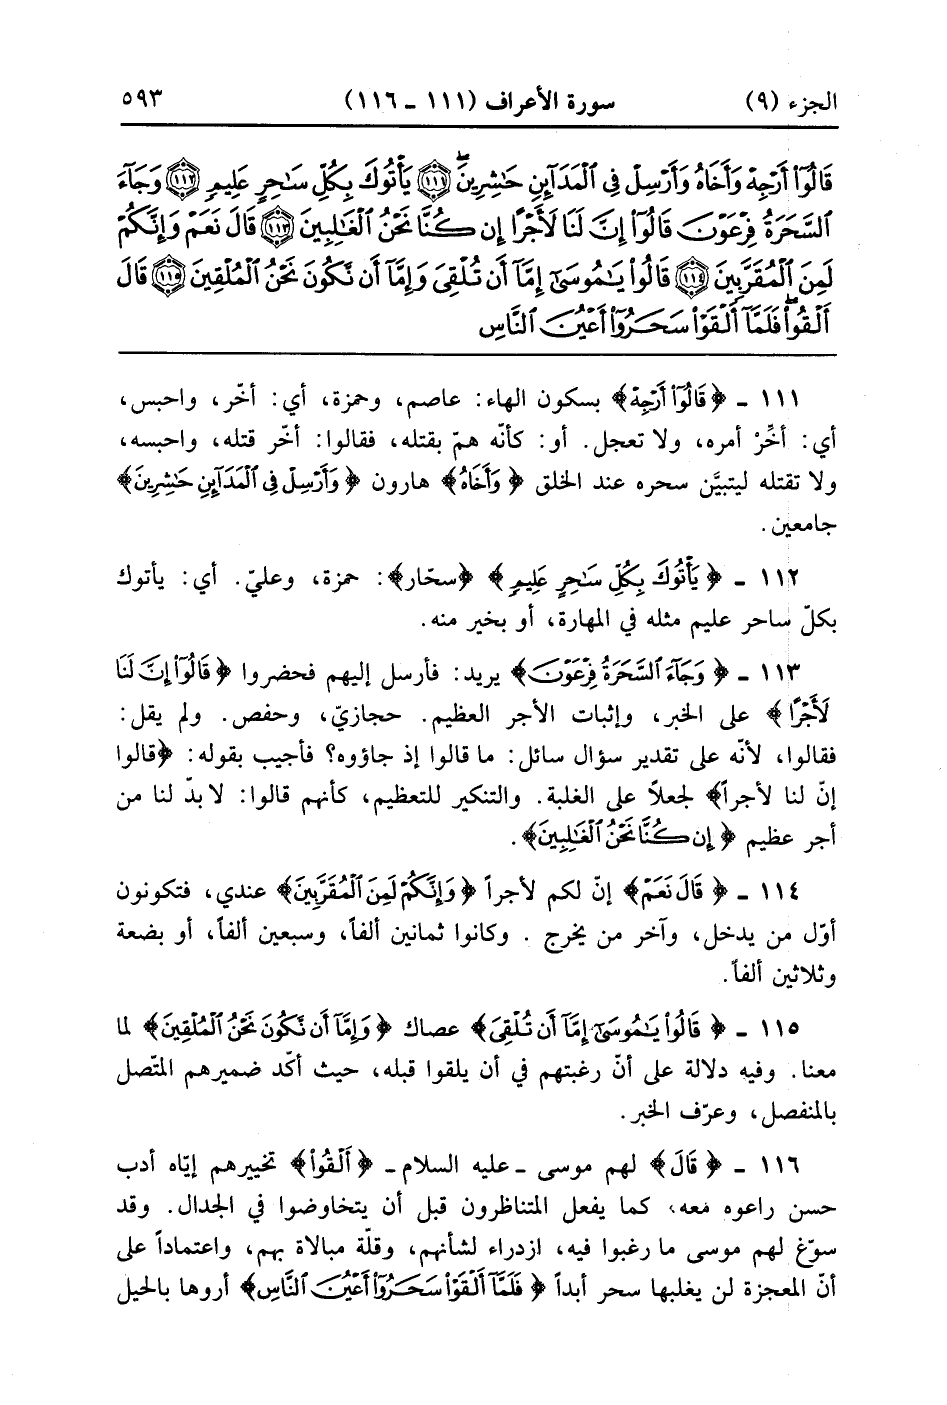 الجزء (٩) سورة الأعراف (١١١ ـ ١١٦) ٥٩٣
قَالُوٓا۟ أَرْجِهْ وَأَخَاهُ وَأَرْسِلْ فِى ٱلْمَدَآئِنِ حَٰشِرِينَ ۝١١١ يَأْتُوكَ بِكُلِّ سَٰحِرٍ عَلِيمٍ ۝١١٢ وَجَآءَ
ٱلسَّحَرَةُ فِرْعَوْنَ قَالُوٓا۟ إِنَّ لَنَا لَأَجْرًا إِن كُنَّا نَحْنُ ٱلْغَٰلِبِينَ ۝١١٣ قَالَ نَعَمْ وَإِنَّكُمْ
لَمِنَ ٱلْمُقَرَّبِينَ ۝١١٤ قَالُوا۟ يَٰمُوسَىٰٓ إِمَّآ أَن تُلْقِىَ وَإِمَّآ أَن نَّكُونَ نَحْنُ ٱلْمُلْقِينَ ۝١١٥ قَالَ
أَلْقُوا۟ ۖ فَلَمَّآ أَلْقَوْا۟ سَحَرُوٓا۟ أَعْيُنَ ٱلنَّاسِ
١١١ ـ ﴿قَالُوٓا۟ أَرْجِهْ﴾ بسكون الهاء: عاصم، وحمزة، أي: أخّر، واحبس،
أي: أخِّرْ أمره، ولا تعجل. أو: كأنّه همّ بقتله، فقالوا: أخّر قتله، واحبسه،
ولا تقتله ليتبيَّن سحره عند الخلق ﴿وَأَخَاهُ﴾ هارون ﴿وَأَرْسِلْ فِى ٱلْمَدَآئِنِ حَٰشِرِينَ﴾
جامعين.
١١٢ ـ ﴿يَأْتُوكَ بِكُلِّ سَٰحِرٍ عَلِيمٍ﴾ ﴿سحّار﴾: حمزة، وعليّ. أي: يأتوك
بكلّ ساحر عليم مثله في المهارة، أو بخير منه.
١١٣ ـ ﴿وَجَآءَ ٱلسَّحَرَةُ فِرْعَوْنَ﴾ يريد: فأرسل إليهم فحضروا ﴿قَالُوٓا۟ إِنَّ لَنَا
لَأَجْرًا﴾ على الخبر، وإثبات الأجر العظيم. حجازيّ، وحفص. ولم يقل:
فقالوا، لأنّه على تقدير سؤال سائل: ما قالوا إذ جاؤوه؟ فأجيب بقوله: ﴿قالوا
إنّ لنا لأجراً﴾ لجعلاً على الغلبة. والتنكير للتعظيم، كأنهم قالوا: لا بدّ لنا من
أجر عظيم ﴿إِن كُنَّا نَحْنُ ٱلْغَٰلِبِينَ﴾.
١١٤ ـ ﴿قَالَ نَعَمْ﴾ إنّ لكم لأجراً ﴿وَإِنَّكُمْ لَمِنَ ٱلْمُقَرَّبِينَ﴾ عندي، فتكونون
أوّل من يدخل، وآخر من يخرج . وكانوا ثمانين ألفاً، وسبعين ألفاً، أو بضعة
وثلاثين ألفاً.
١١٥ ـ ﴿قَالُوا۟ يَٰمُوسَىٰٓ إِمَّآ أَن تُلْقِىَ﴾ عصاك ﴿وَإِمَّآ أَن نَّكُونَ نَحْنُ ٱلْمُلْقِينَ﴾ لما
معنا. وفيه دلالة على أنّ رغبتهم في أن يلقوا قبله، حيث أكّد ضميرهم المتّصل
بالمنفصل، وعرّف الخبر.
١١٦ ـ ﴿قَالَ﴾ لهم موسى ـ عليه السلام ـ ﴿أَلْقُوا۟﴾ تخييرهم إيّاه أدب
حسن راعوه معه، كما يفعل المتناظرون قبل أن يتخاوضوا في الجدال. وقد
سوّغ لهم موسى ما رغبوا فيه، ازدراء لشأنهم، وقلّة مبالاة بهم، واعتماداً على
أنّ المعجزة لن يغلبها سحر أبداً ﴿فَلَمَّآ أَلْقَوْا۟ سَحَرُوٓا۟ أَعْيُنَ ٱلنَّاسِ﴾ أروها بالحيل